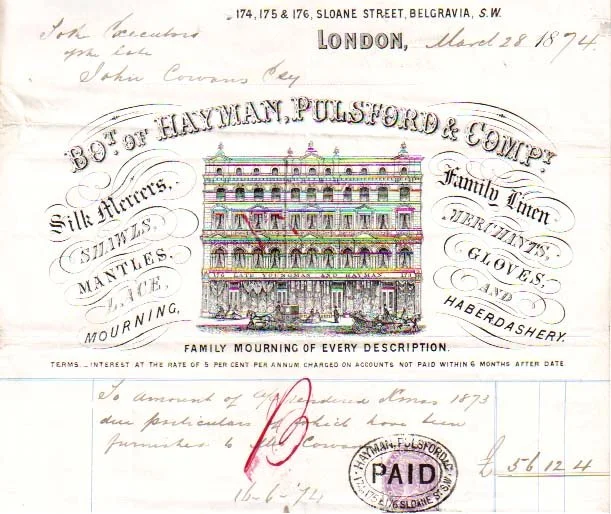 174, 175 & 176, SLOANE STREET, BELGRAVIA, S.W.
LONDON, March 28 1874.
To the Executors
of the late
John Cowans Esq
BOT. OF HAYMAN, PULSFORD & COMPY.
Silk Mercers,
SHAWLS,
MANTLES.
LACE,
MOURNING,
Family Linen
MERCHANTS,
GLOVES,
AND
HABERDASHERY.
LATE YOUNGMAN AND HAYMAN
FAMILY MOURNING OF EVERY DESCRIPTION.
TERMS._INTEREST AT THE RATE OF 5 PER CENT PER ANNUM CHARGED ON ACCOUNTS NOT PAID WITHIN 6 MONTHS AFTER DATE
To amount of a/c rendered Xmas 1873
due particulars of which have been
furnished to Cowans
£ 56 12 4
HAYMAN, PULSFORD & Co.
PAID
174, 175 & 176 SLOANE ST. S.W.
16-6-74